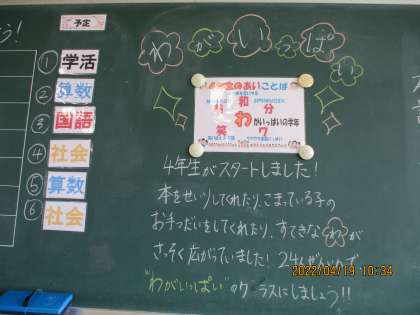 う!
予定
① 学活
② 算数
③ 国語
④ 社会
⑤ 算数
⑥ 社会
わがいっぱい
4年生のあいことば
和
分
わがいっぱいの学年
笑
4年生がスタートしました!
本をせいりしてくれたり、こまっている子の
お手つだいをしてくれたり、すてきなわが
さっそく広がっていました! 24人ぜんいんで
"わがいっぱい"のクラスにしましょう!!
2022/04/19 10:34